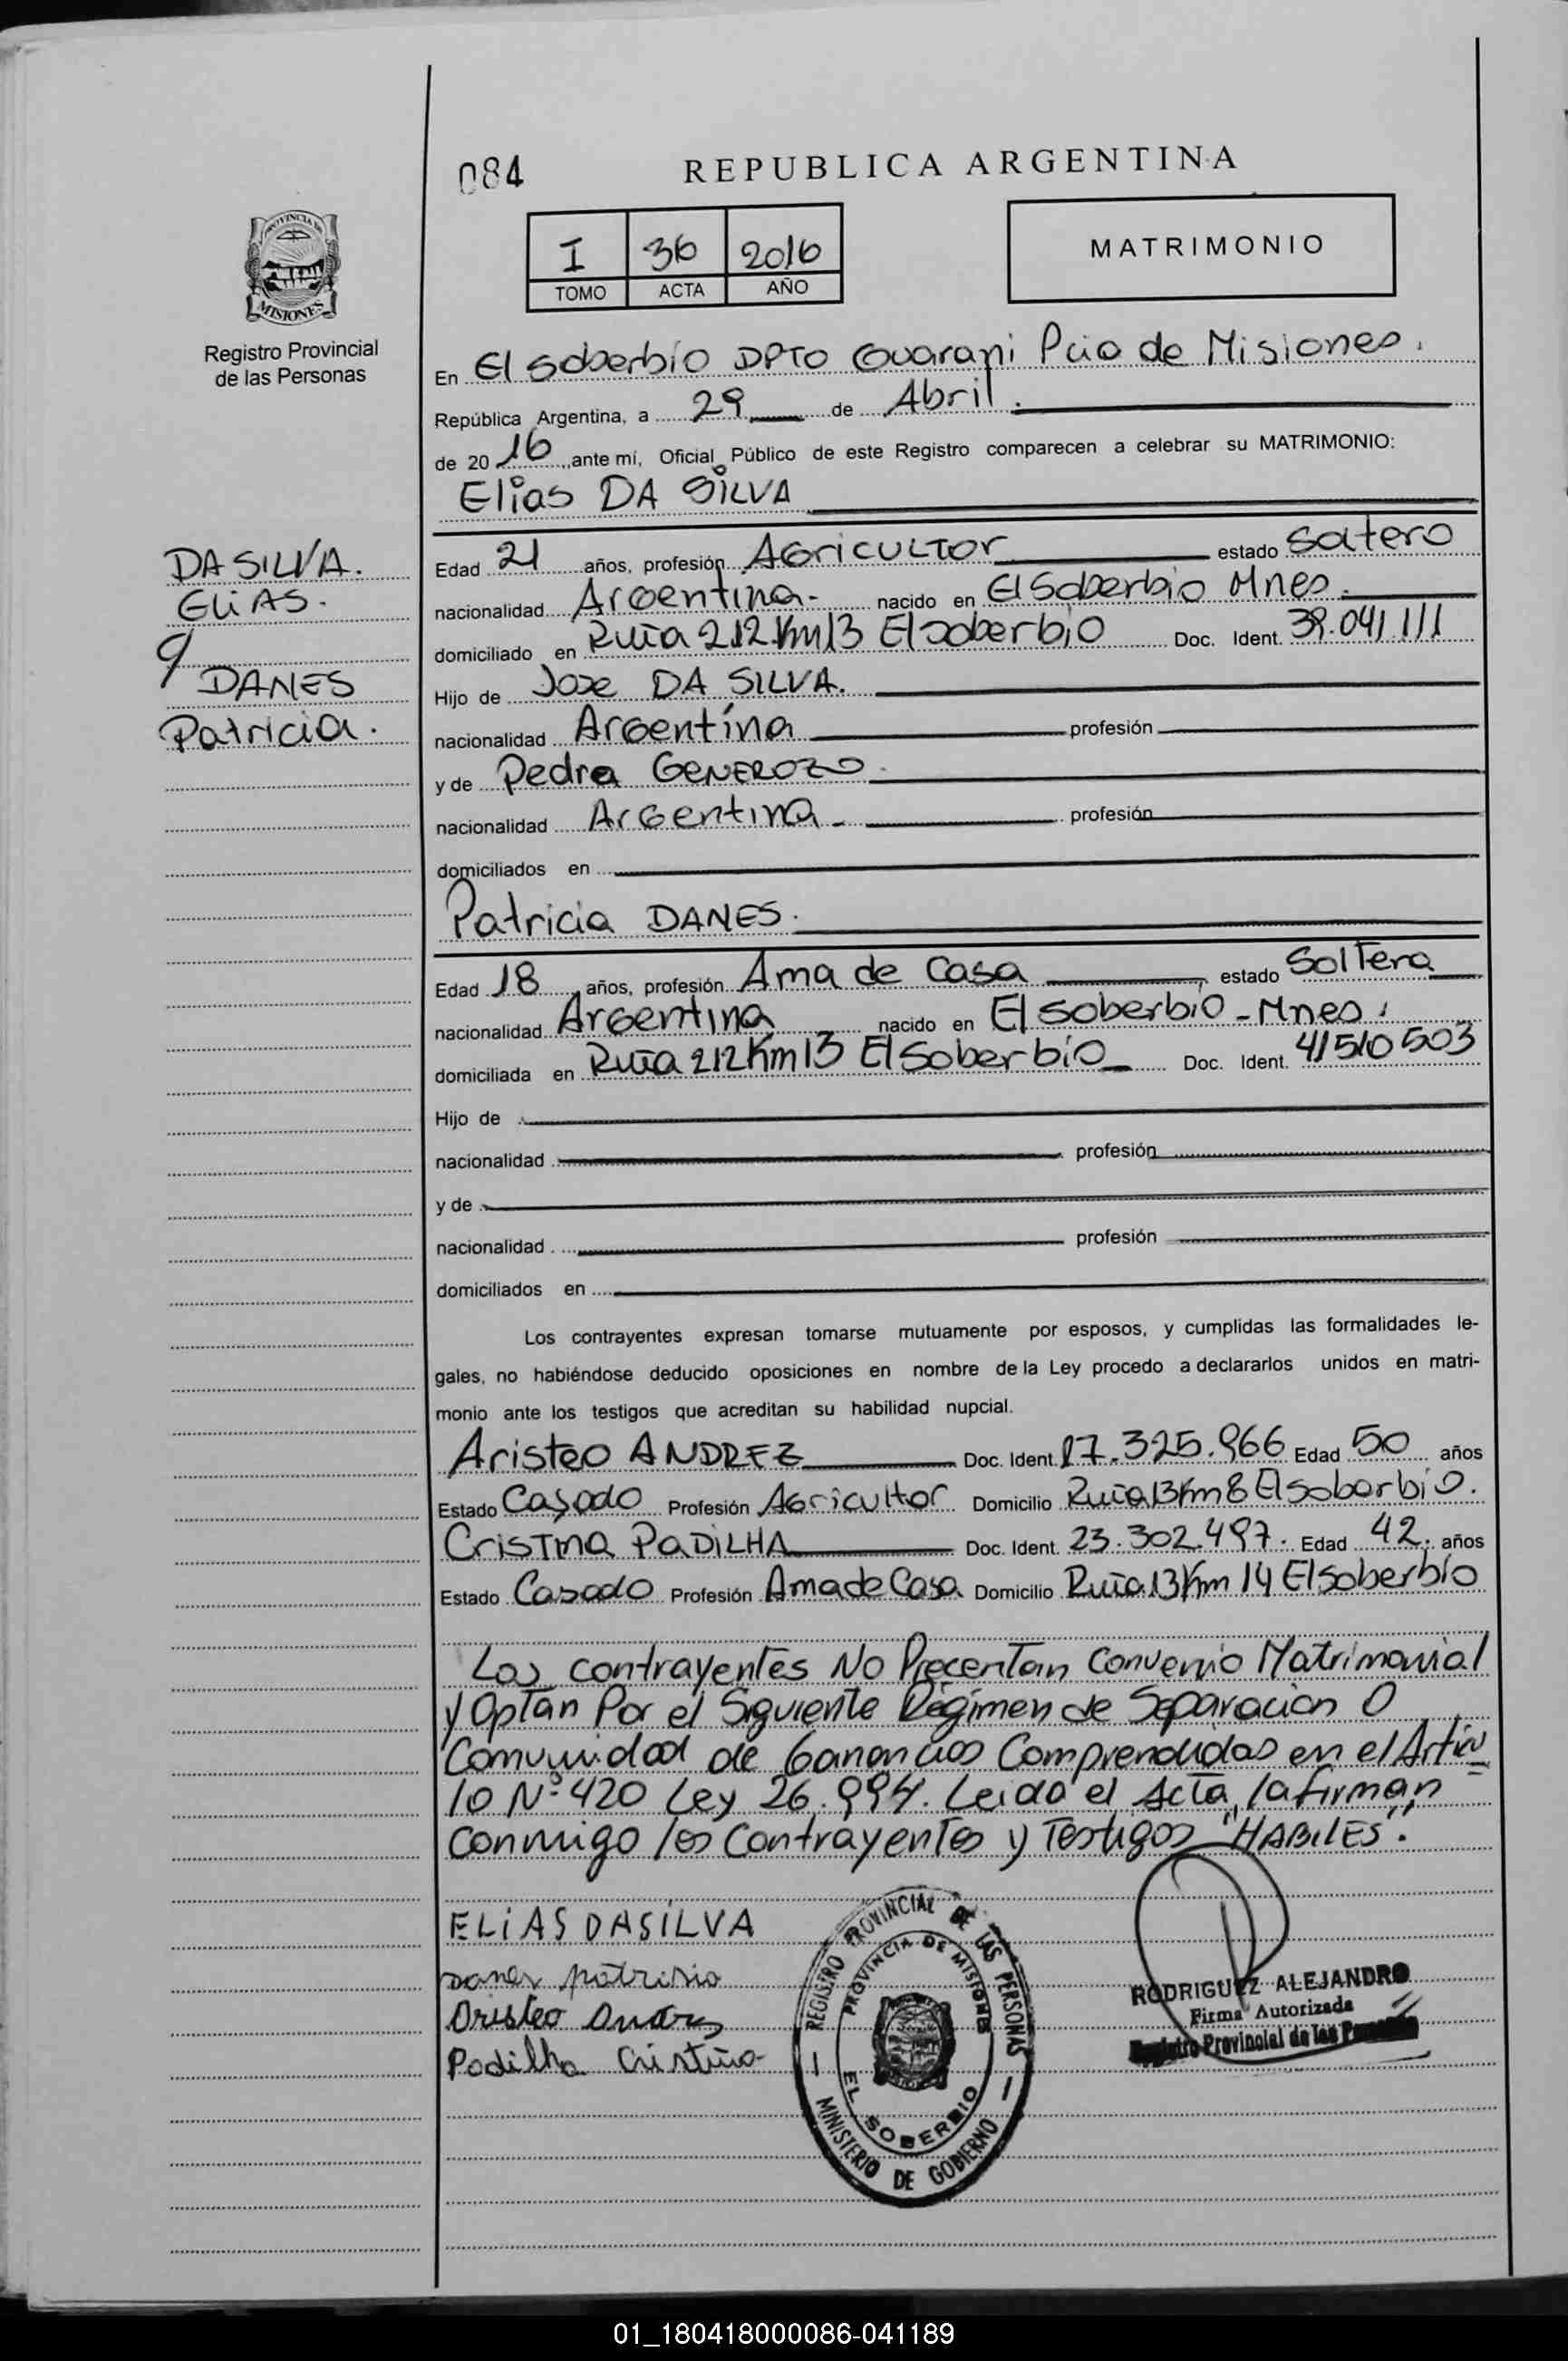 084
REPUBLICA ARGENTINA
PROVINCIA DE
MISIONES
Registro Provincial
de las Personas
I 36 2016
TOMO ACTA AÑO
MATRIMONIO
En El Soberbio DPTO Guarani Pcia de Misiones.
República Argentina, a 29 de Abril.
de 20 16 ,ante mí, Oficial Público de este Registro comparecen a celebrar su MATRIMONIO:
Elias DA SILVA
DA SILVA.
ELIAS.
DANES
Patricia.
Edad 21 años, profesión AGRICULTOR estado Soltero
nacionalidad Argentina. nacido en El Soberbio Mnes.
domiciliado en Ruta 212 Km13 El Soberbio Doc. Ident. 39.041.111
Hijo de Jose DA SILVA.
nacionalidad Argentina profesión
y de Pedra GENEROZO
nacionalidad Argentina - profesión
domiciliados en
Patricia DANES.
Edad 18 años, profesión Ama de Casa estado Soltera
nacionalidad Argentina nacido en El soberbio - Mnes.
domiciliada en Ruta 212 Km13 El Soberbio Doc. Ident. 41510503
Hijo de
nacionalidad profesión
y de
nacionalidad profesión
domiciliados en
Los contrayentes expresan tomarse mutuamente por esposos, y cumplidas las formalidades le-
gales, no habiéndose deducido oposiciones en nombre de la Ley procedo a declararlos unidos en matri-
monio ante los testigos que acreditan su habilidad nupcial.
Aristeo ANDREZ Doc. Ident. 17.325.966 Edad 50 años
Estado Casado Profesión Agricultor Domicilio Ruta 13 Km 8 El Soberbio.
Cristina PADILHA Doc. Ident. 23.302.497. Edad 42. años
Estado Casado Profesión Ama de Casa Domicilio Ruta 13 Km 14 El Soberbio
Los contrayentes No Precentan Convenio Matrimonial
y Optan Por el Siguiente Regimen de Separacion O
Comunidad de Ganancias Comprendidas en el Articu
lo N° 420 Ley 26.994. Leida el Acta, la firman
conmigo los Contrayentes y Testigos "HABILES".
ELIAS DA SILVA
Danes patrisia
Aristeo Andres
Padilha Cristina
REGISTRO PROVINCIAL DE LAS PERSONAS
PROVINCIA DE MISIONES
EL SOBERBIO
MINISTERIO DE GOBIERNO
RODRIGUEZ ALEJANDRO
Firma Autorizada
Registro Provincial de las Personas
01_180418000086-041189